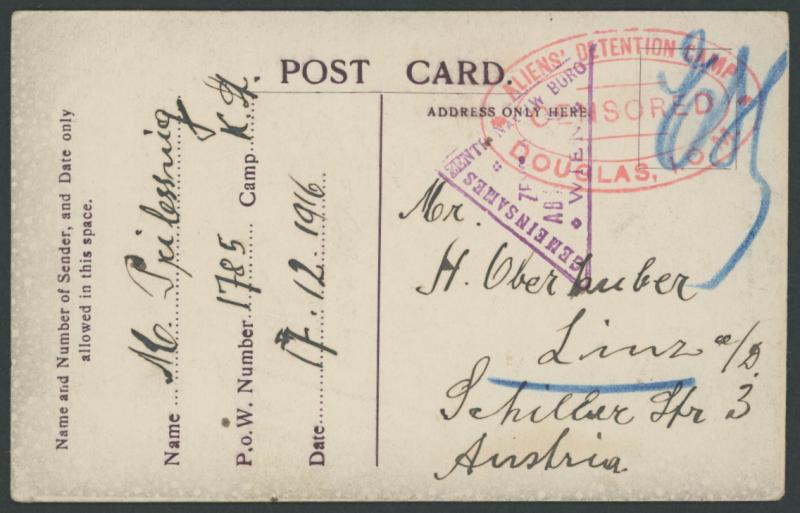 POST CARD.
ADDRESS ONLY HERE
Name and Number of Sender, and Date only
allowed in this space.
Name M. Prilessnig
P.o.W. Number 1785 Camp K.H.
Date 17.12.1916
ALIENS' DETENTION CAMP
CENSORED
DOUGLAS, I.o.M.
GEMEINSAMES ZENTRALNACHW. BURO
WIEN
ZE
AB
Mr.
H. Oberhuber
Linz a/D.
Schiller Str 3
Austria